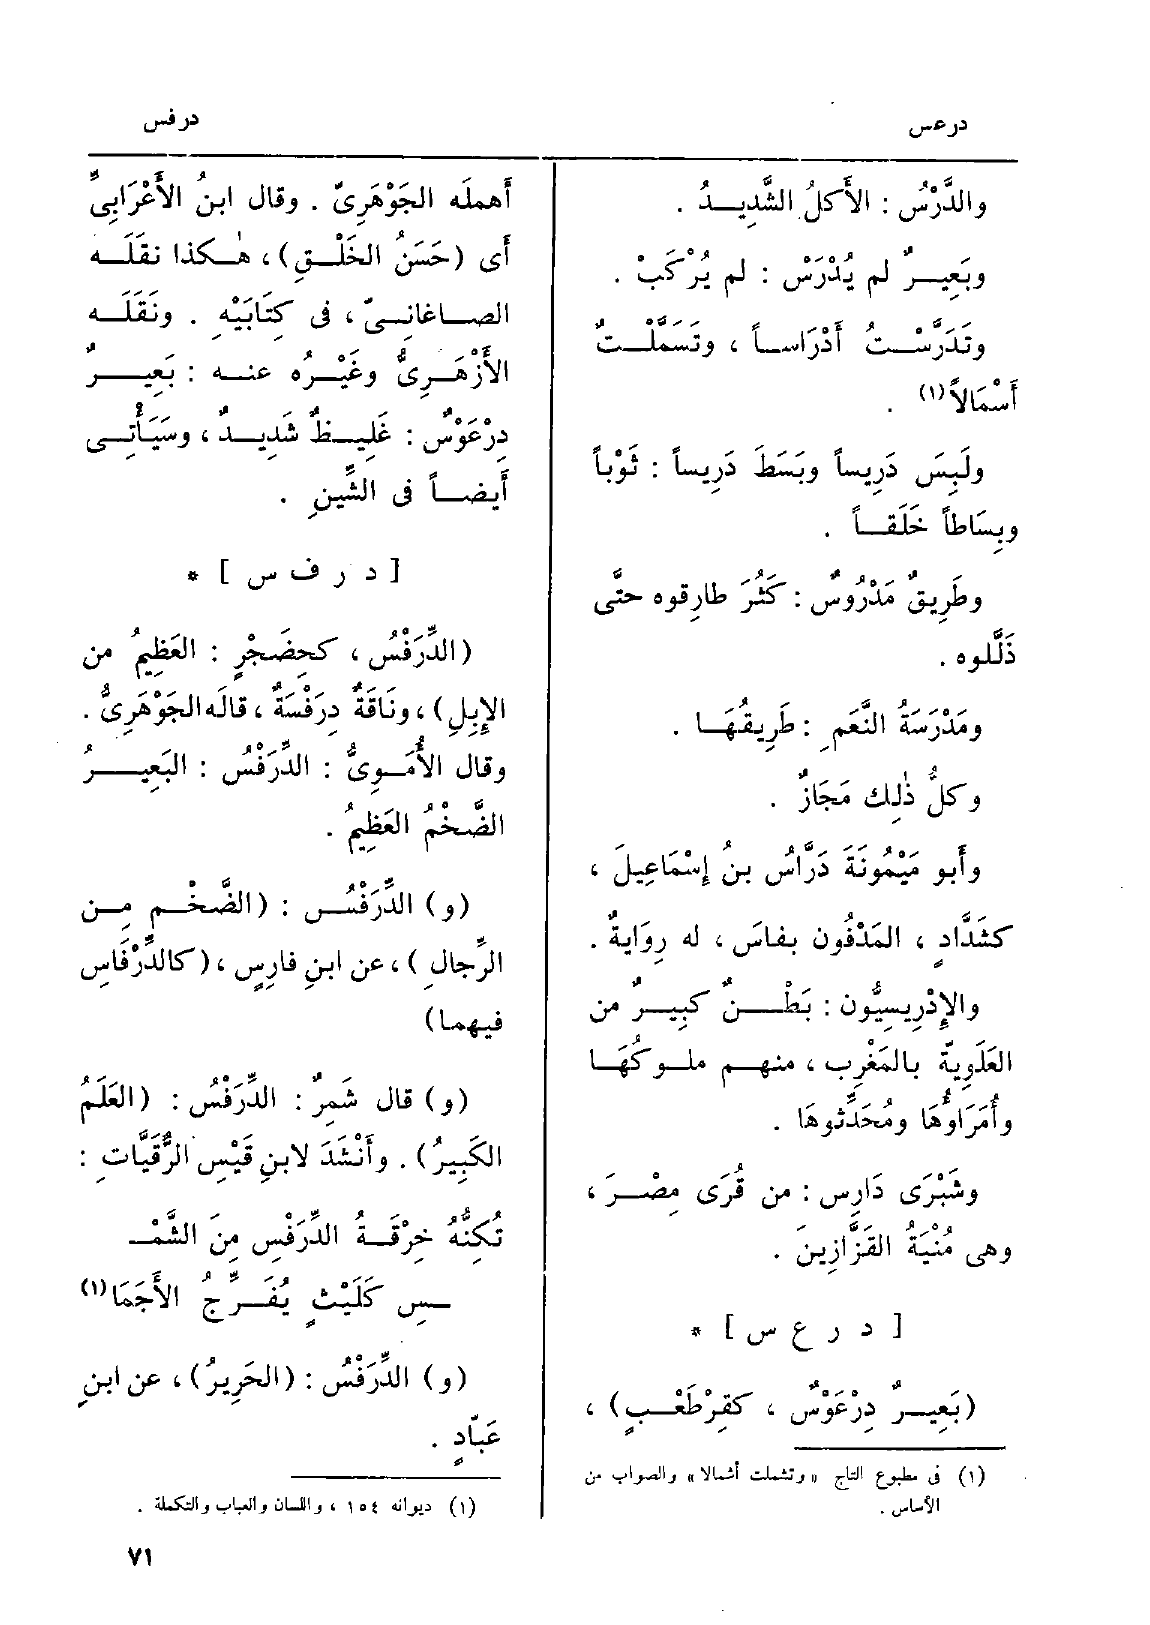 درعس
درفس
والدَّرْسُ : الأَكلُ الشَّدِيـدُ .
وبَعِيـرٌ لم يُدْرَسْ : لم يُرْكَبْ .
وتَدَرَّسْـتُ أَدْرَاسـاً ، وتَسَمَّلْـتُ
أَسْمَالاً(١) .
ولَبِسَ دَرِيساً وبَسَطَ دَرِيساً : ثَوْباً
وبِسَاطاً خَلَقـاً .
وطَرِيقٌ مَدْرُوسٌ : كَثُرَ طارِقوه حتَّى
ذَلَّلوه .
ومَدْرَسَةُ النَّعَمِ : طَرِيقُهَـا .
وكلُّ ذٰلِك مَجَازٌ .
وأَبو مَيْمُونَةَ دَرَّاسُ بنُ إِسْمَاعِيلَ ،
كشَدَّادٍ ، المَدْفُون بفاسَ ، له رِوَايةٌ .
والإِدْرِيسِيُّون : بَطْـنٌ كبِيـرٌ من
العَلَوِيّة بالمَغْرِب ، منهـم ملـوكُهَـا
وأُمَرَاوُهَا ومُحَدِّثوهَا .
وشَبْرَى دَارِس : من قُرَى مِصْـرَ ،
وهى مُنْيَةُ القَزَّازِينَ .
[ د ر ع س ] *
(بَعِيـرٌ دِرْعَوْسٌ ، كقِرْطَعْـبٍ) ،
(١) فى مطبوع التاج «وتشملت أشمالا» والصواب من
الأساس .
أَهملَه الجَوْهَرِىّ . وقال ابنُ الأَعْرَابِىِّ
أَى (حَسَنُ الخَلْـقِ) ، هٰـكذا نقَلَـه
الصـاغانِـىّ ، فى كِتَابَيْهِ . ونَقَلَـه
الأَزْهَـرِىُّ وغَيْـرُه عنـه : بَعِيـرٌ
دِرْعَوْسٌ : غَلِيـظٌ شَدِيـدٌ ، وسَيَأْتِـى
أَيضـاً فى الشِّينِ .
[ د ر ف س ] *
(الدِّرَفْسُ ، كحِضَجْرٍ : العَظِيمُ من
الإِبِلِ) ، ونَاقَةٌ دِرَفْسَةٌ ، قالَه الجَوْهَرِىُّ .
وقال الأُمَـوِىُّ : الدِّرَفْسُ : البَعِيـرُ
الضَّخْمُ العَظِيمُ .
(و) الدِّرَفْـسُ : (الضَّخْـم مِـن
الرِّجالِ ) ، عن ابنِ فارِسٍ ، (كالدِّرْفَاسِ
فيهما)
(و) قال شَمِرٌ : الدِّرَفْسُ : (العَلَمُ
الكَبِيرُ) . وأَنْشَدَ لابنِ قَيْسِ الرُّقَيَّاتِ :
تُكِنُّهُ خِرْقَـةُ الدِّرَفْسِ مِنَ الشَّمْـ
ـسِ كَلَيْثٍ يُفَـرِّجُ الأَجَمَا(١)
(و) الدِّرَفْسُ : (الحَرِيرُ) ، عن ابنِ
عَبّادٍ .
(١) ديوانه ١٥٤ ، واللسان والعباب والتكملة .
٧١